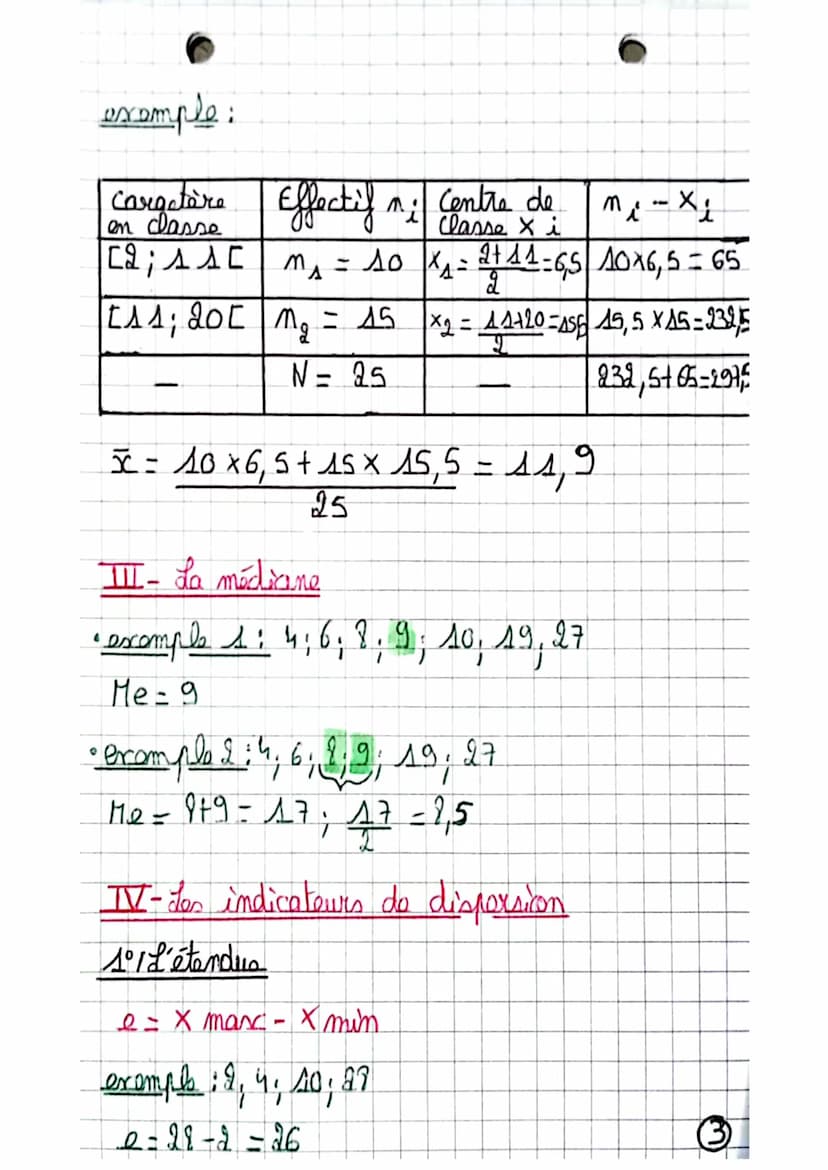 exemple :
Caractère en classe | Effectif ni | Centre de classe x i | ni - xi
[2 ; 11[ | n1 = 10 | x1 = (2+11)/2 = 6,5 | 10×6,5 = 65
[11 ; 20[ | n2 = 15 | x2 = (11+20)/2 = 15,5 | 15,5 ×15 = 232,5
— | N = 25 | — | 232,5+65=297,5
x̄ = (10 ×6,5 + 15 × 15,5)/25 = 11,9
III - La médiane
• exemple 1 : 4 ; 6 ; 8 ; 9 ; 10 ; 19 ; 27
Me = 9
• exemple 2 : 4 ; 6 ; 8 ; 9 ; 19 ; 27
Me = 8+9 = 17 ; 17/2 = 8,5
IV - Les indicateurs de dispersion
1°/ L'étendue
e = x max - x min
exemple : 2 ; 4 ; 10 ; 28
e = 28 - 2 = 26
3